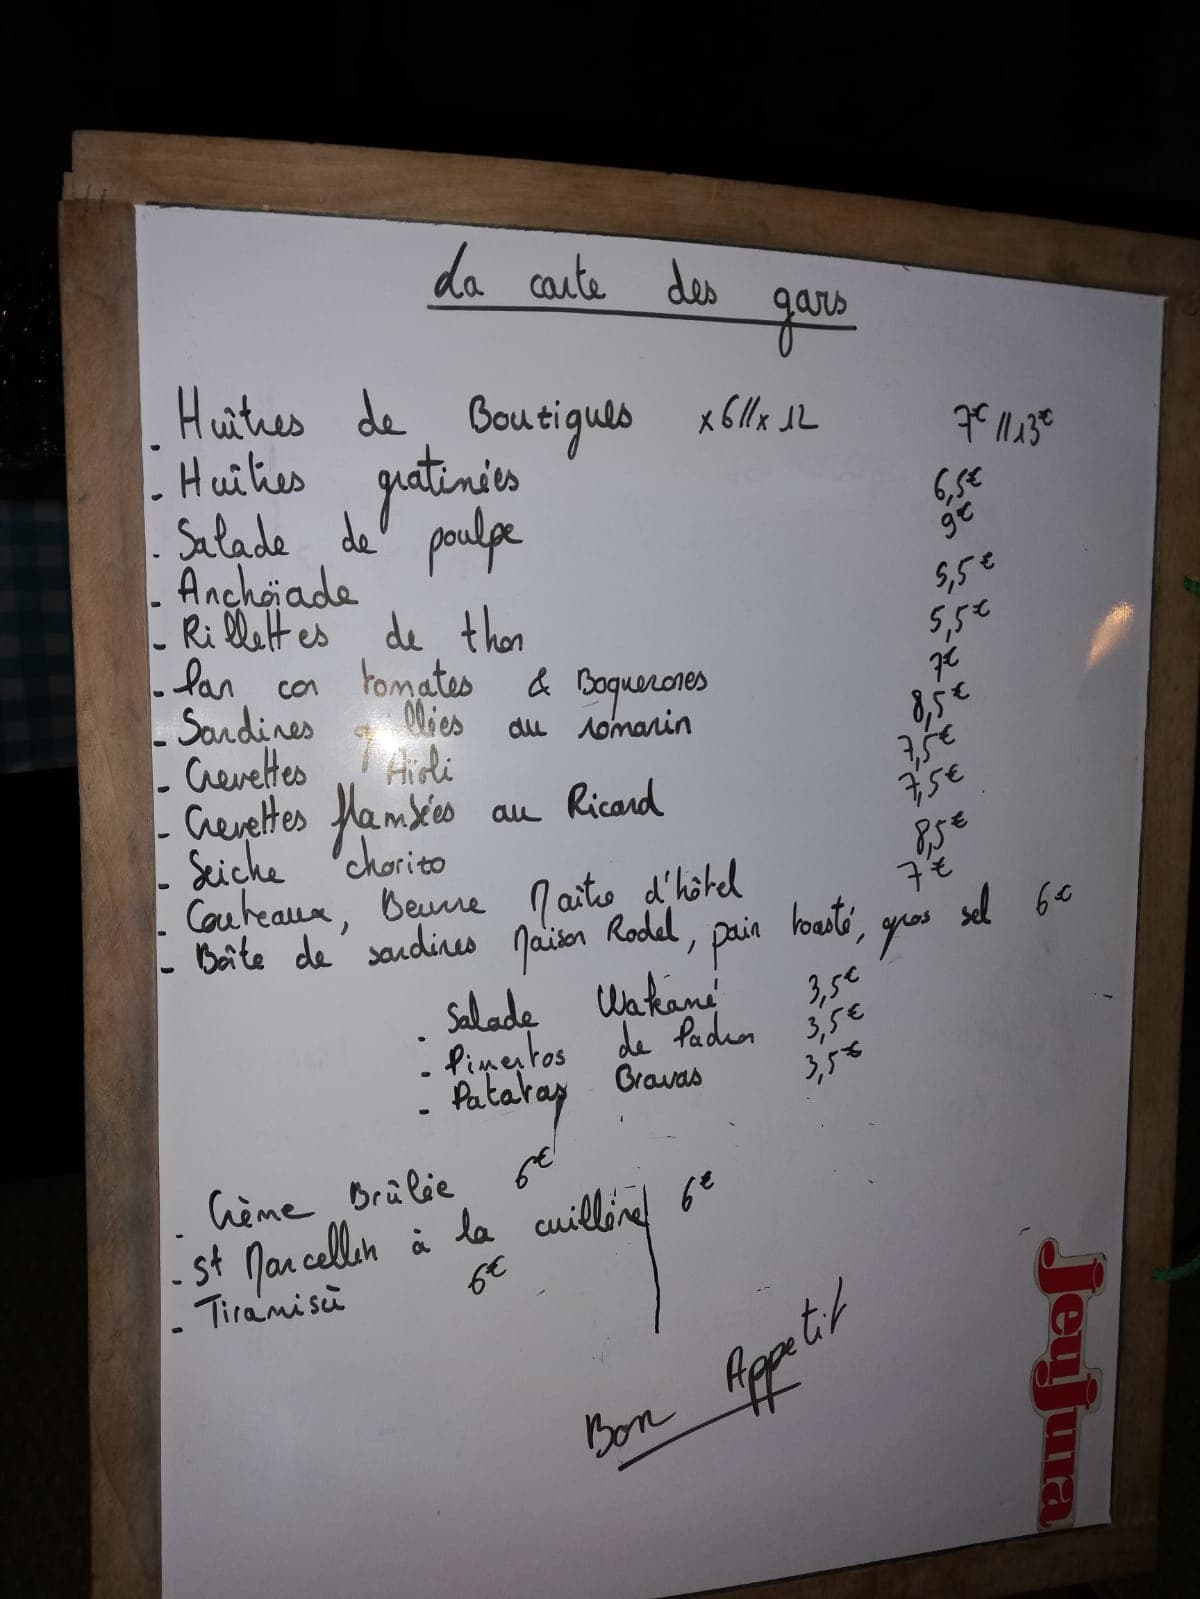 La carte des gars
- Huîtres de Boutigues x6//x12 7€//13€
- Huîtres gratinées 6,5€
- Salade de poulpe 9€
- Anchoïade 5,5€
- Rillettes de thon 5,5€
- Pan con tomates & Boquerones 7€
- Sardines grillées au romarin 8,5€
- Crevettes Aïoli 7,5€
- Crevettes flambées au Ricard 7,5€
- Seiche chorizo 8,5€
- Couteaux, Beurre Maître d'hôtel 7€
- Boîte de sardines Maison Rodel, pain toasté, gros sel 6€
- Salade Wakamé 3,5€
- Pimentos de Padron 3,5€
- Patatas Bravas 3,5€
- Crème Brûlée 6€
- St Marcellin à la cuillère 6€
- Tiramisù 6€
Bon Appetit
Jeujura